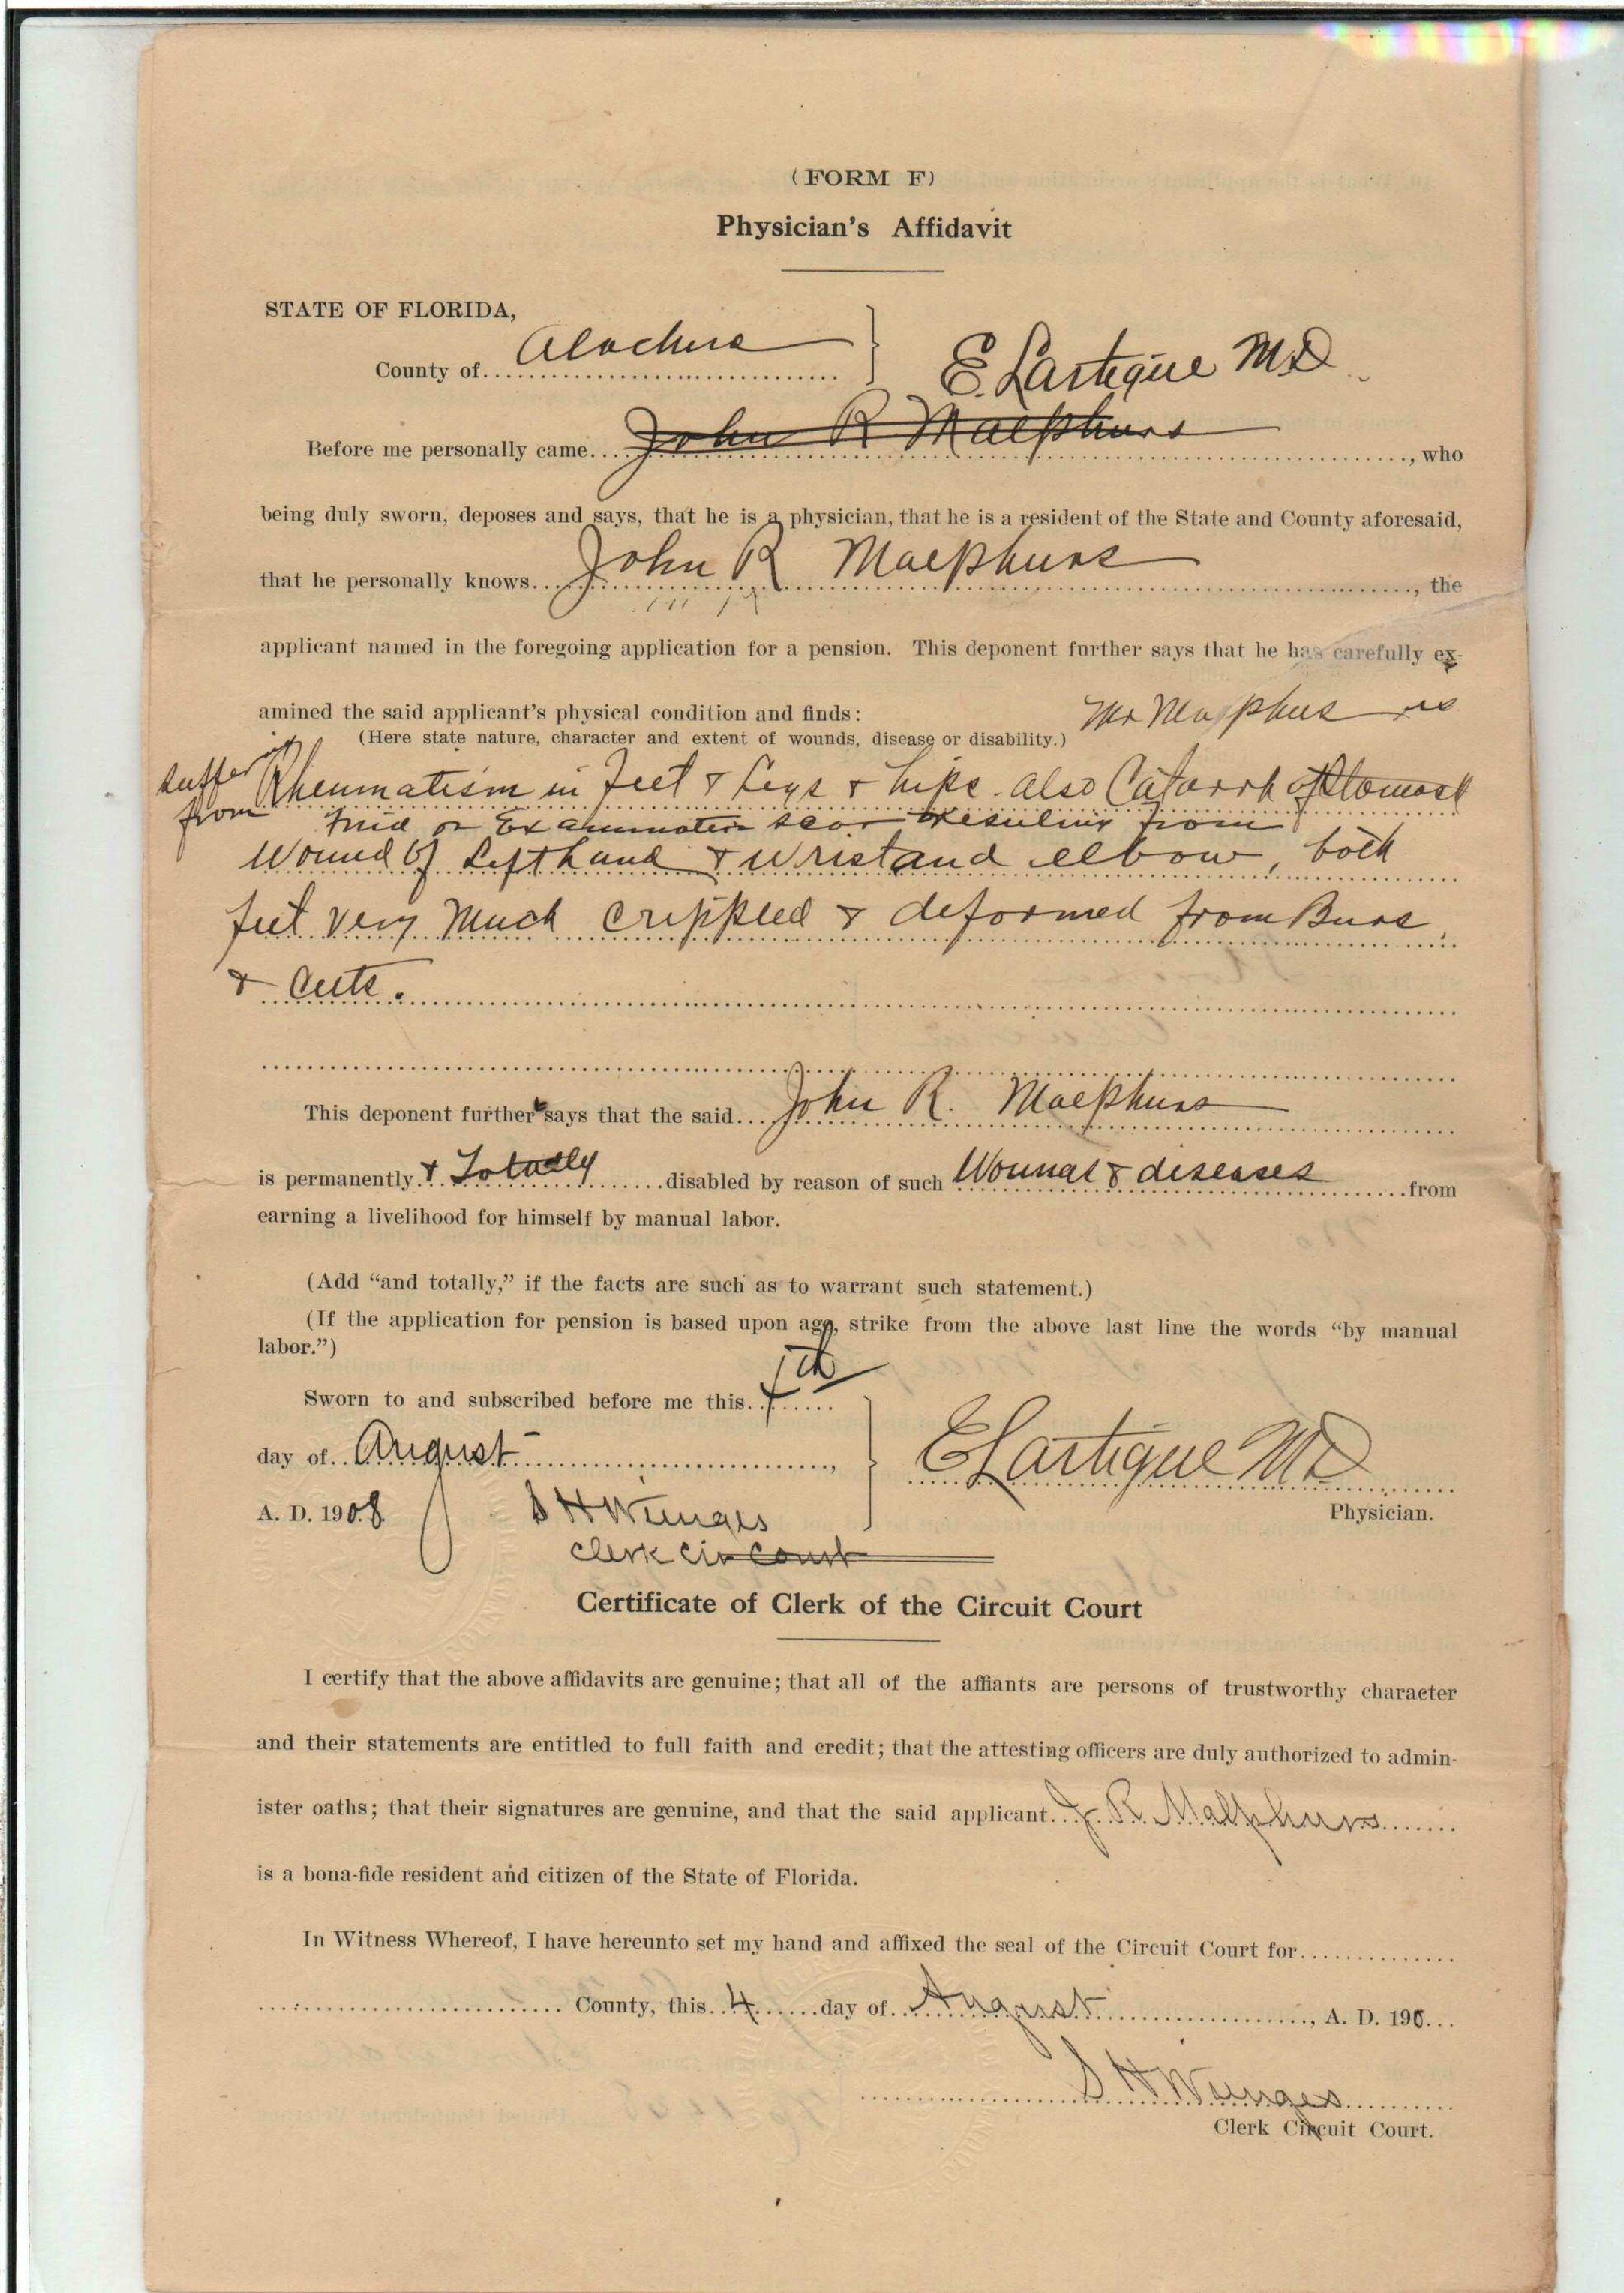 (FORM F)
Physician's Affidavit
STATE OF FLORIDA,
County of Alachua
E. Lartigue MD
Before me personally came John R Malphurs, who
being duly sworn, deposes and says, that he is a physician, that he is a resident of the State and County aforesaid,
that he personally knows John R Malphurs, the
applicant named in the foregoing application for a pension. This deponent further says that he has carefully ex-
amined the said applicant's physical condition and finds: Mr Malphus is
(Here state nature, character and extent of wounds, disease or disability.)
suffering from Rheumatism in Feet & Legs & hips. also Catarrh of Stomach
find on Examination scar resulting from
Wound of Left hand & wrist and elbow, both
feet very much crippled & deformed from Burs
& cuts.
This deponent further says that the said John R. Malphurs
is permanently & Totally disabled by reason of such Wounds & diseases from
earning a livelihood for himself by manual labor.
(Add “and totally,” if the facts are such as to warrant such statement.)
(If the application for pension is based upon age, strike from the above last line the words “by manual
labor.”)
Sworn to and subscribed before me this
day of August, E Lartigue MD
A. D. 1908 S H Wienges Physician.
Clerk Cir Court
Certificate of Clerk of the Circuit Court
I certify that the above affidavits are genuine; that all of the affiants are persons of trustworthy character
and their statements are entitled to full faith and credit; that the attesting officers are duly authorized to admin-
ister oaths; that their signatures are genuine, and that the said applicant J. R. Malphurs
is a bona-fide resident and citizen of the State of Florida.
In Witness Whereof, I have hereunto set my hand and affixed the seal of the Circuit Court for
County, this 4 day of August, A. D. 190
S H Wienges
Clerk Circuit Court.